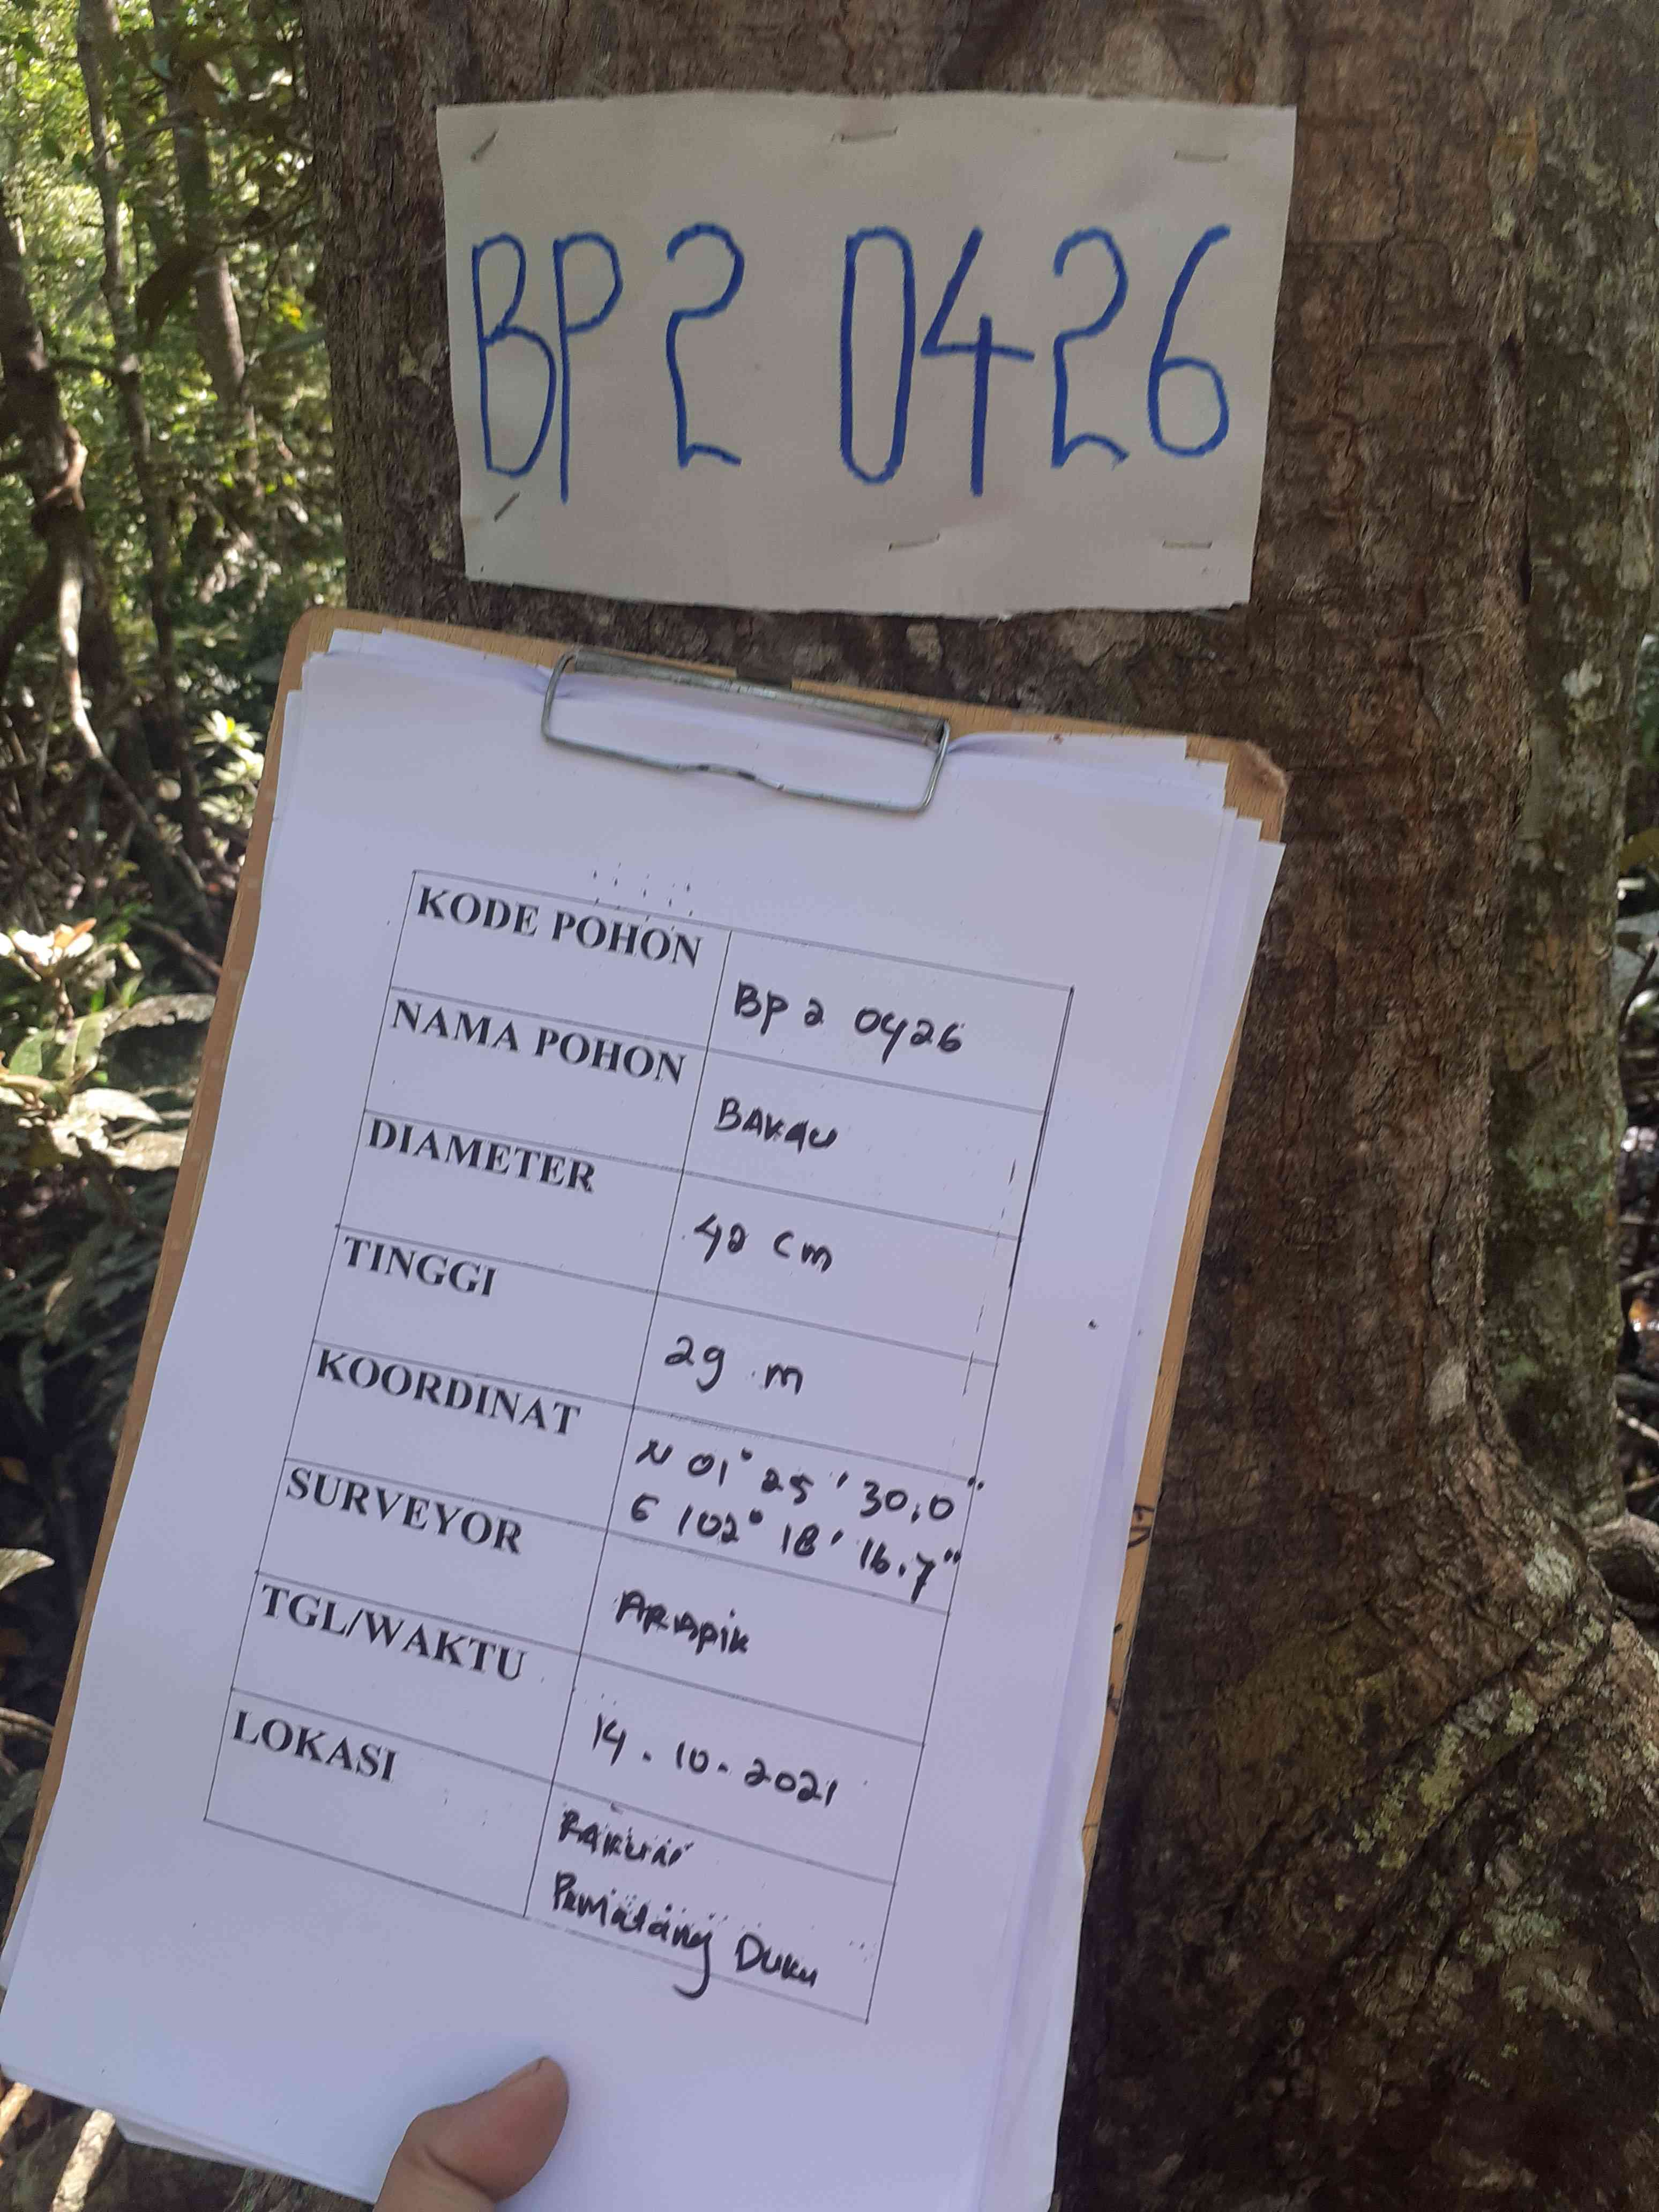 BP2 0426
KODE POHON BP 2 0426
NAMA POHON BAKAU
DIAMETER 42 cm
TINGGI 29 m
KOORDINAT N 01° 25' 30.0"
E 102° 18' 16.7"
SURVEYOR
TGL/WAKTU 14.10.2021
LOKASI
Pematang Duku